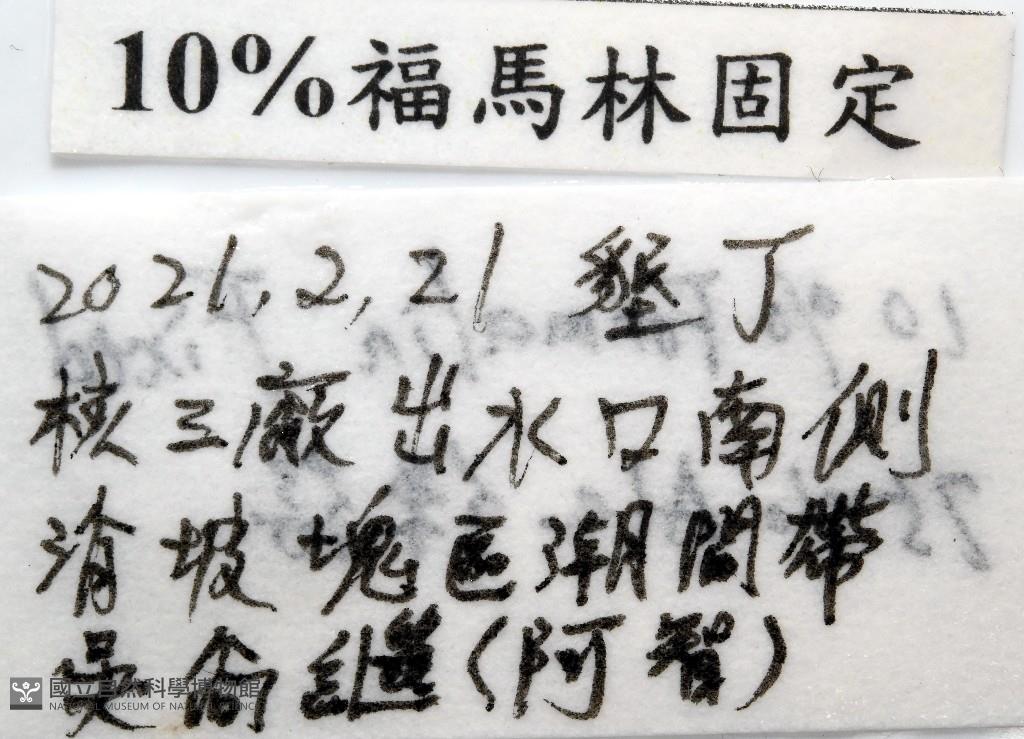 10%福馬林固定
2021.2.21 墾丁
核三廠出水口南側
消坡塊區潮間帶
吳 (阿智)
國立自然科學博物館
NATIONAL MUSEUM OF NATURAL SCIENCE